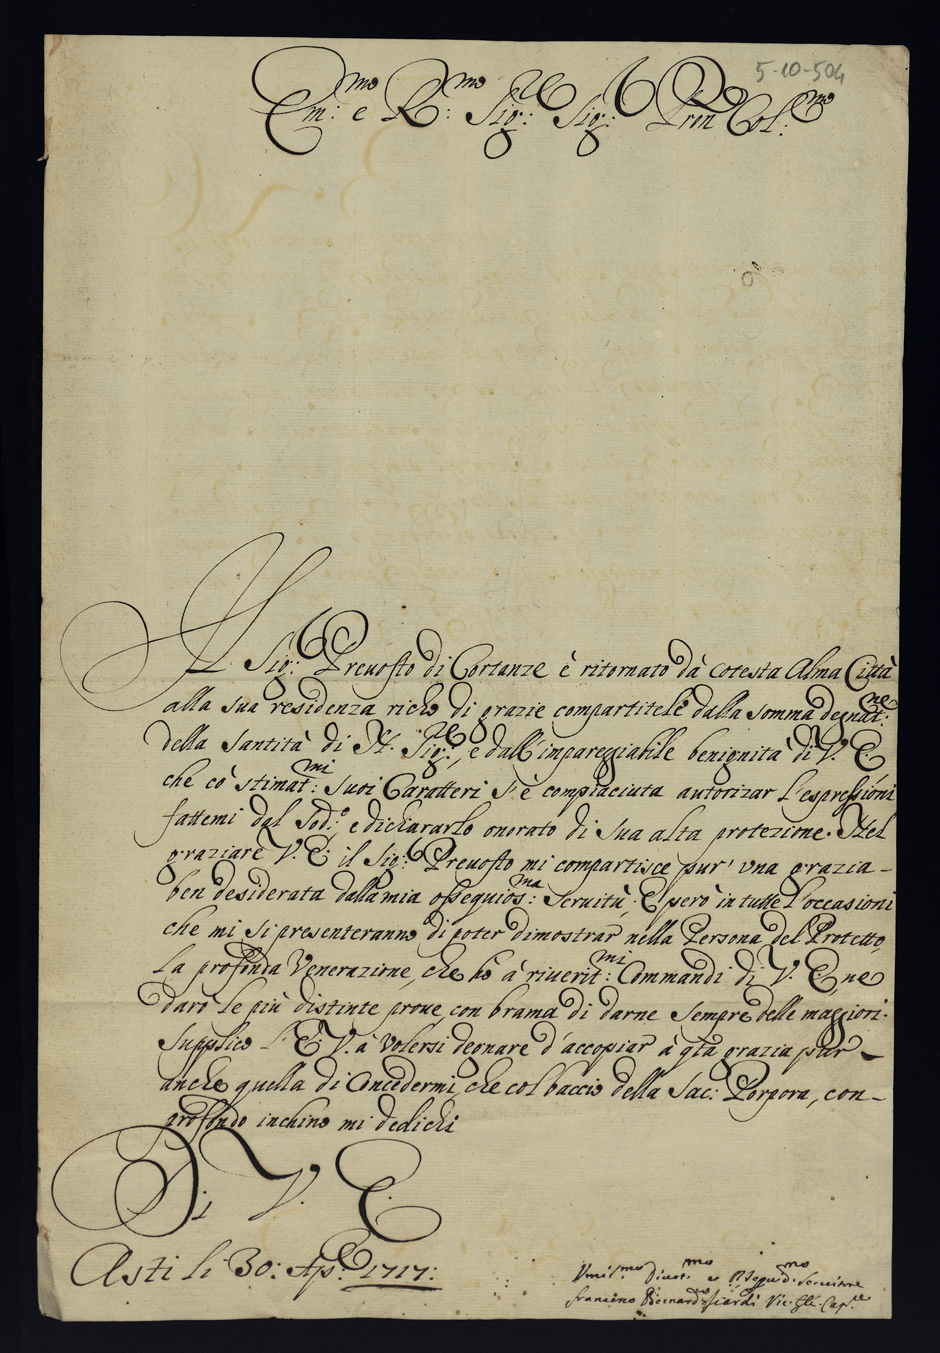 5-10-504
Em:mo e R:mo Sig:re Sig:r Pron Col:mo
Il Sig:r Preuosto di Cortanze è ritornato dà cotesta Alma Città
alla sua residenza richo di grazie compartitele dalla somma degnat:ne
della Santità di N. Sig:re, e dall'impareggiabile benignità di V. E.
che cò stimat:mi suoi Caratteri s'è compiaciuta autorizar l'espressioni
fattemi dal Sod:o, e dichiararlo onorato di sua alta protezione. Nel
graziare V. E. il Sig:r Preuosto mi compartisce pur' vna grazia
ben desiderata dalla mia ossequios:ma Seruitù, E però in tutte l'occasioni
che mi si presenteranno di poter dimostrar nella Persona del Protetto,
la profonda Venerazione, che hò à riuerit:mi Commandi di V. E., ne
darò le più distinte proue, con brama di darne sempre delle maggiori.
Supplico l'E. V. à volersi degnare d'accopiar à q̃ta grazia pur
anche quella di Concedermi, che col baccio della Sac: Porpora, con
profondo inchino mi dedichi
Di V. E.
Asti li 30: Ap:e 1717:
Vmil:mo Diuot:mo et Obseq:mo Seruitore
Bernard:o Vic: Gle Cap:re